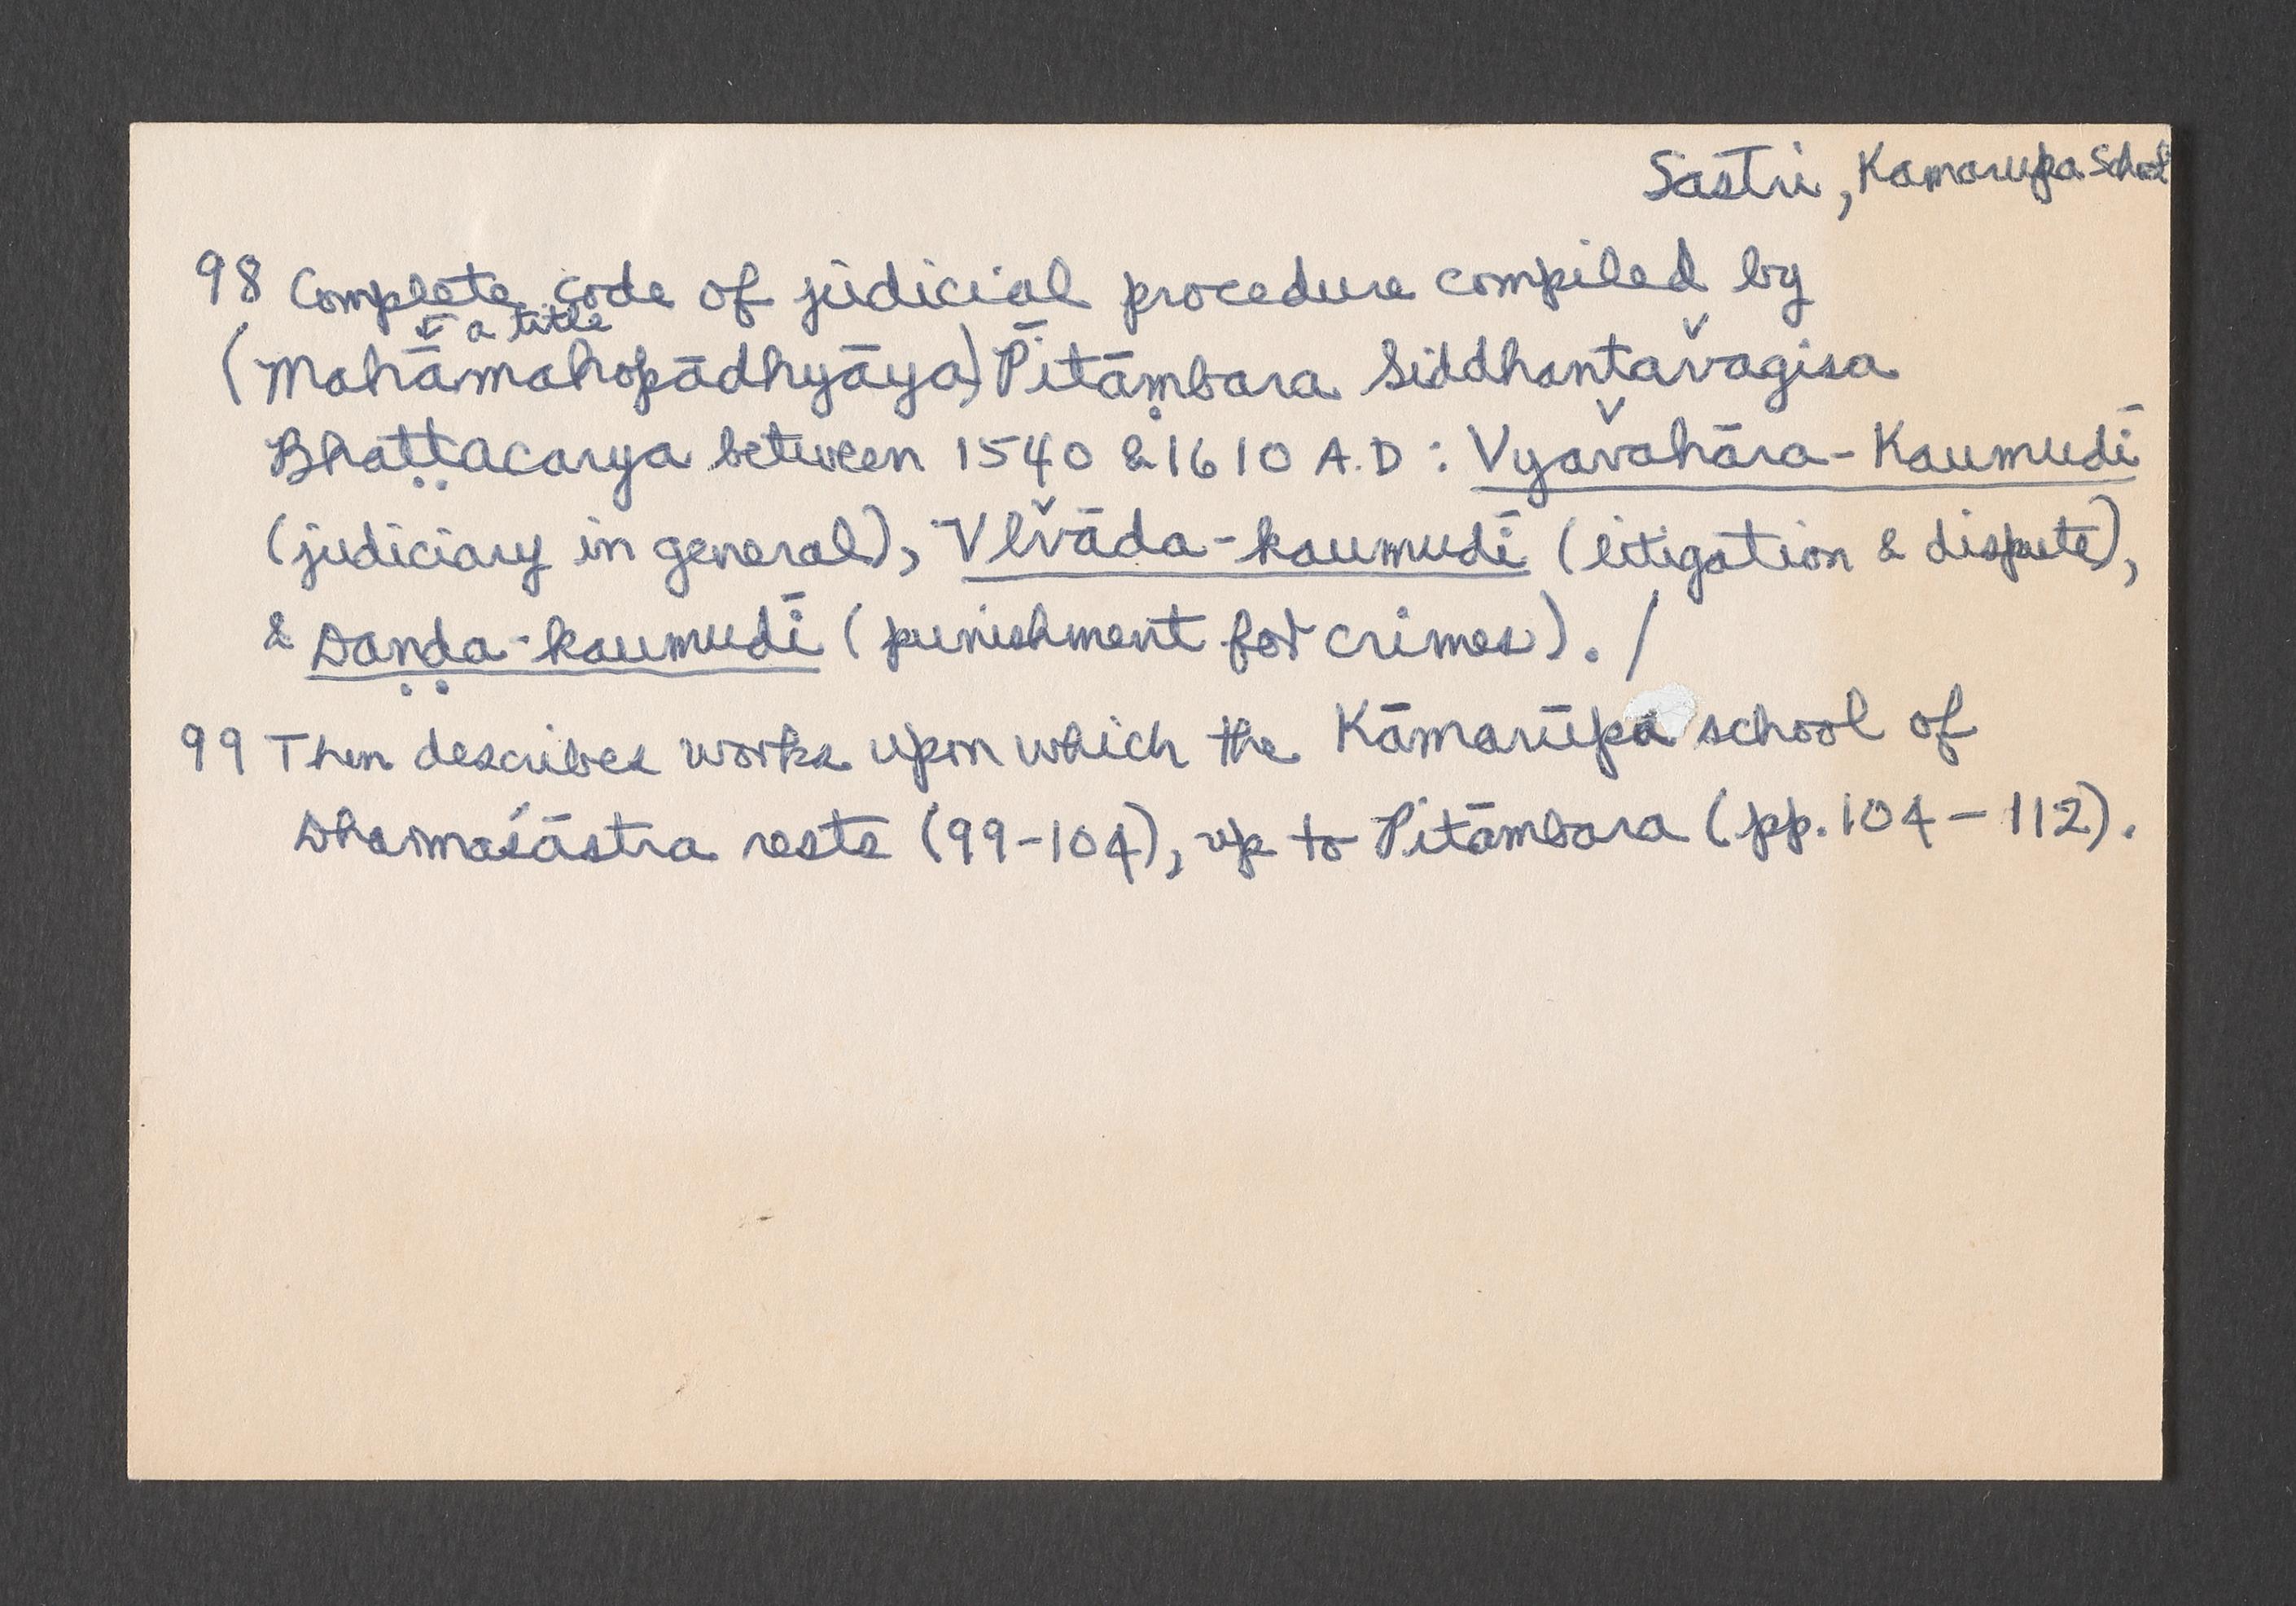 Sastri, Kamarupa School
98 Complete code of judicial procedure compiled by
← a title
(Mahāmahopādhyāya) Pītāṃbara Siddhantav̌agisa
Bhaṭṭacarya between 1540 & 1610 A.D: Vyav̌ahāra-Kaumudī
(judiciary in general), Viv̌āda-kaumudī (litigation & dispute),
& Ḍaṇḍa-kaumudī (punishment for crimes). /
99 Then describes works upon which the Kāmarūpa school of
Dharmaśāstra rests (99-104), up to Pitāmbara (pp. 104-112).